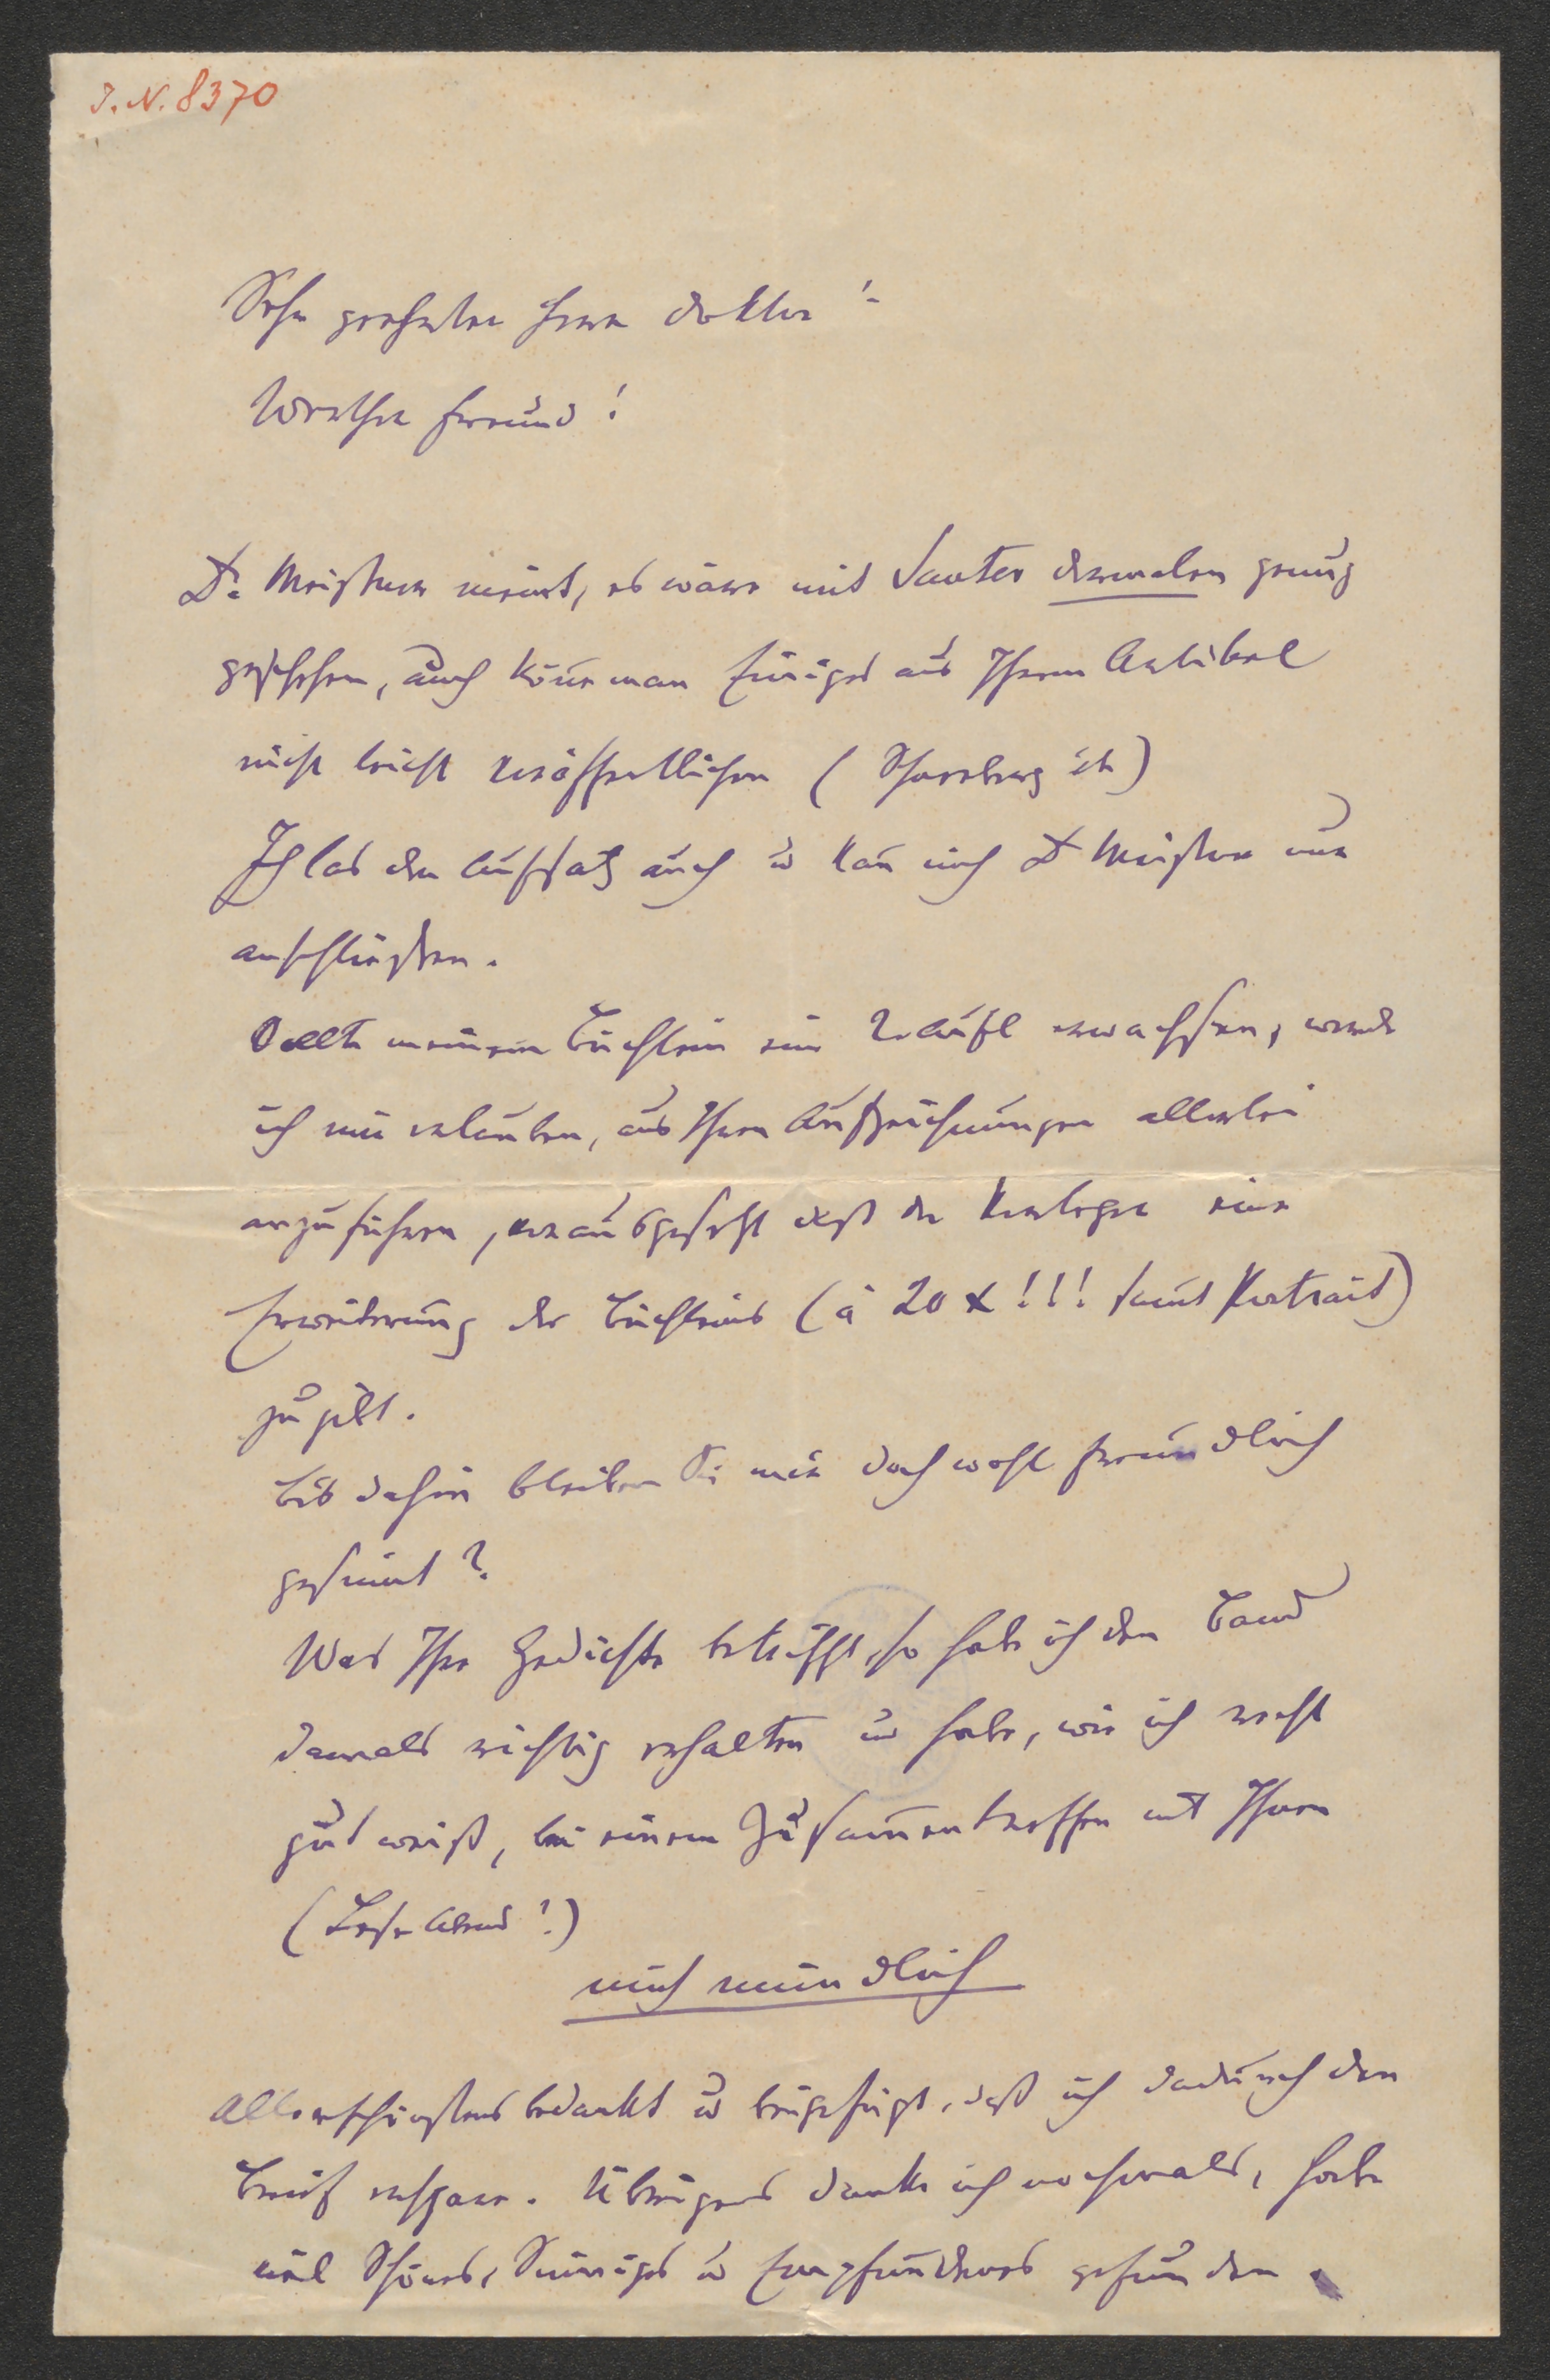 J. N. 8370
Sehr geehrter Herr Doktor!
Werther Freund!
Dr. Meister meint, es wäre mit Sauter dermalen genug
geschehen, auch könne man Einiges aus Ihrem Artikel
nicht leicht veröffentlichen (
Ich las den Aufsatz auch u kan mich Dr Meister nur
anschließen.
Sollte meinem Büchlein eine 2. Aufl erwachsen, werde
ich mir erlauben, aus Ihren Aufzeichnungen allerlei
anzuführen, vorausgesetzt daß der Verleger eine
Erweiterung des Büchleins (à 20 x!!! samt Portrait)
zugibt.
Bis dahin bleiben Sie mir doch wohl freundlich
gesinnt?
Was Ihre Gedichte betrifft, so habe ich den Band
damals richtig erhalten u habe, wie ich recht
gut weiß, bei einem Zusam̄entreffen mit Ihnen
(Lese Abend?)
mich mündlich
allerschönstens bedankt u beigefügt, daß ich dadurch den
Brief erspare. Übrigens danke ich nochmals, habe
viel Schönes, Sinniges u Empfundenes gefunden.